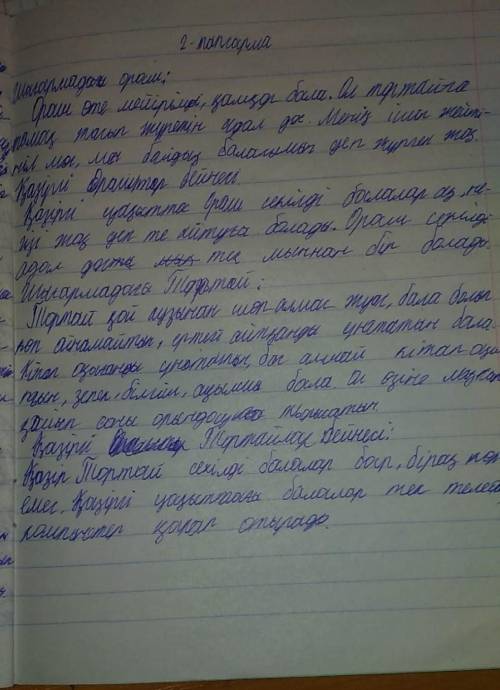 2-тапсырма
Шығармадағы Ораш:
Ораш өте мейірімді, қамқор бала. Ол Тортайға
тамақ тауып жүретін адал дос. Менің ішім жейті-
мін мен, мен байдың баласымын деп жүрген жоқ.
Қазіргі Ораштар бейнесі.
Қазіргі уақытта Ораш секілді балалар аз, не-
месе жоқ деп те айтуға болады. Ораш секілді
адал достық тек мыңнан бір болады.
Шығармадағы Тортай:
Тортай қой аузынан шөп алмас жуас, бала болып
көп ойнамайтын, ертегі айтқанды ұнататын бала.
Кітап оқығанды ұнатып, бас алмай кітап оқи-
тын, зерек, білгін, ақылды бала. Ол өзіне мақсат
қойып соны орындауға тырысатын.
Қазіргі Тортайлар бейнесі:
Қазір Тортай секілді балалар бар, бірақ көп
емес. Қазіргі уақыттағы балалар тек теле
компьютер қарап отырады.